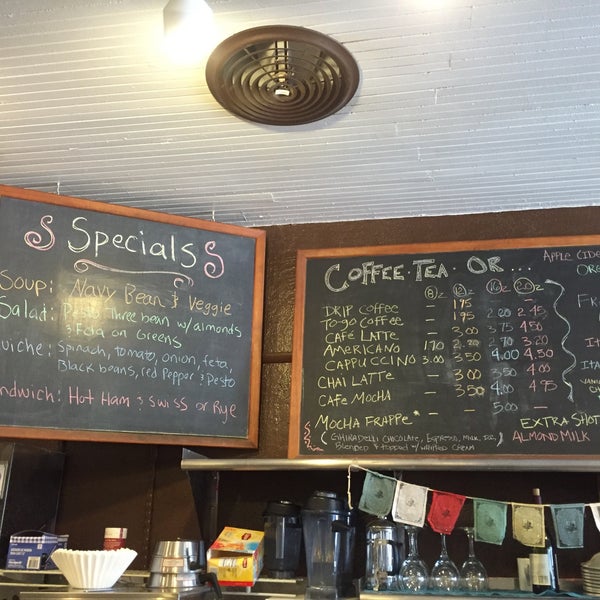 Specials
Soup: Navy Bean & Veggie
Salad: Pesto Three bean w/ almonds
& Feta on Greens
Quiche: Spinach, tomato, onion, feta,
Black beans, red Pepper & Pesto
Sandwich: Hot Ham & Swiss or Rye
COFFEE·TEA·OR...
8oz 12oz 16oz 20oz
DRIP COFFEE — 1.75 — —
TO-GO COFFEE — 1.95 2.20 2.45
CAFÉ LATTE — 3.00 3.75 4.50
AMERICANO 1.70 2.20 2.70 3.20
CAPPUCCINO 3.00 3.50 4.00 4.50
CHAI LATTE — 3.00 3.50 4.20
CAFE MOCHA — 3.50 4.00 4.95
MOCHA FRAPPE — — 5.00 —
(GHIRADELLI CHOCOLATE, ESPRESSO, MILK, ICE
Blended & topped w/ WHIPPED CREAM
APPLE CIDE
EXTRA SHOT
ALMOND MILK